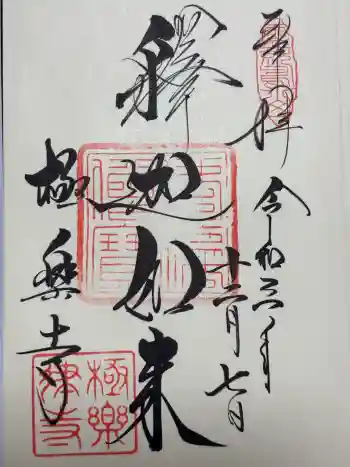 奉拝
令和六年
十二月七日
釋迦如来
極楽寺
極樂